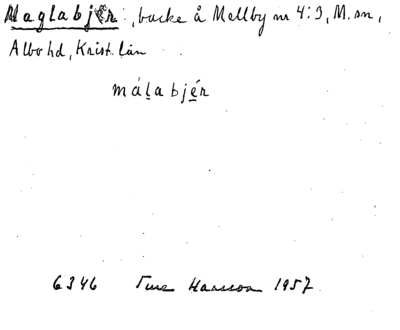 Maglabjär, backe å Mellby nr 4:3, M. sn,
Albo hd, Krist. län
málabjér
6346 Ture Hansson 1957